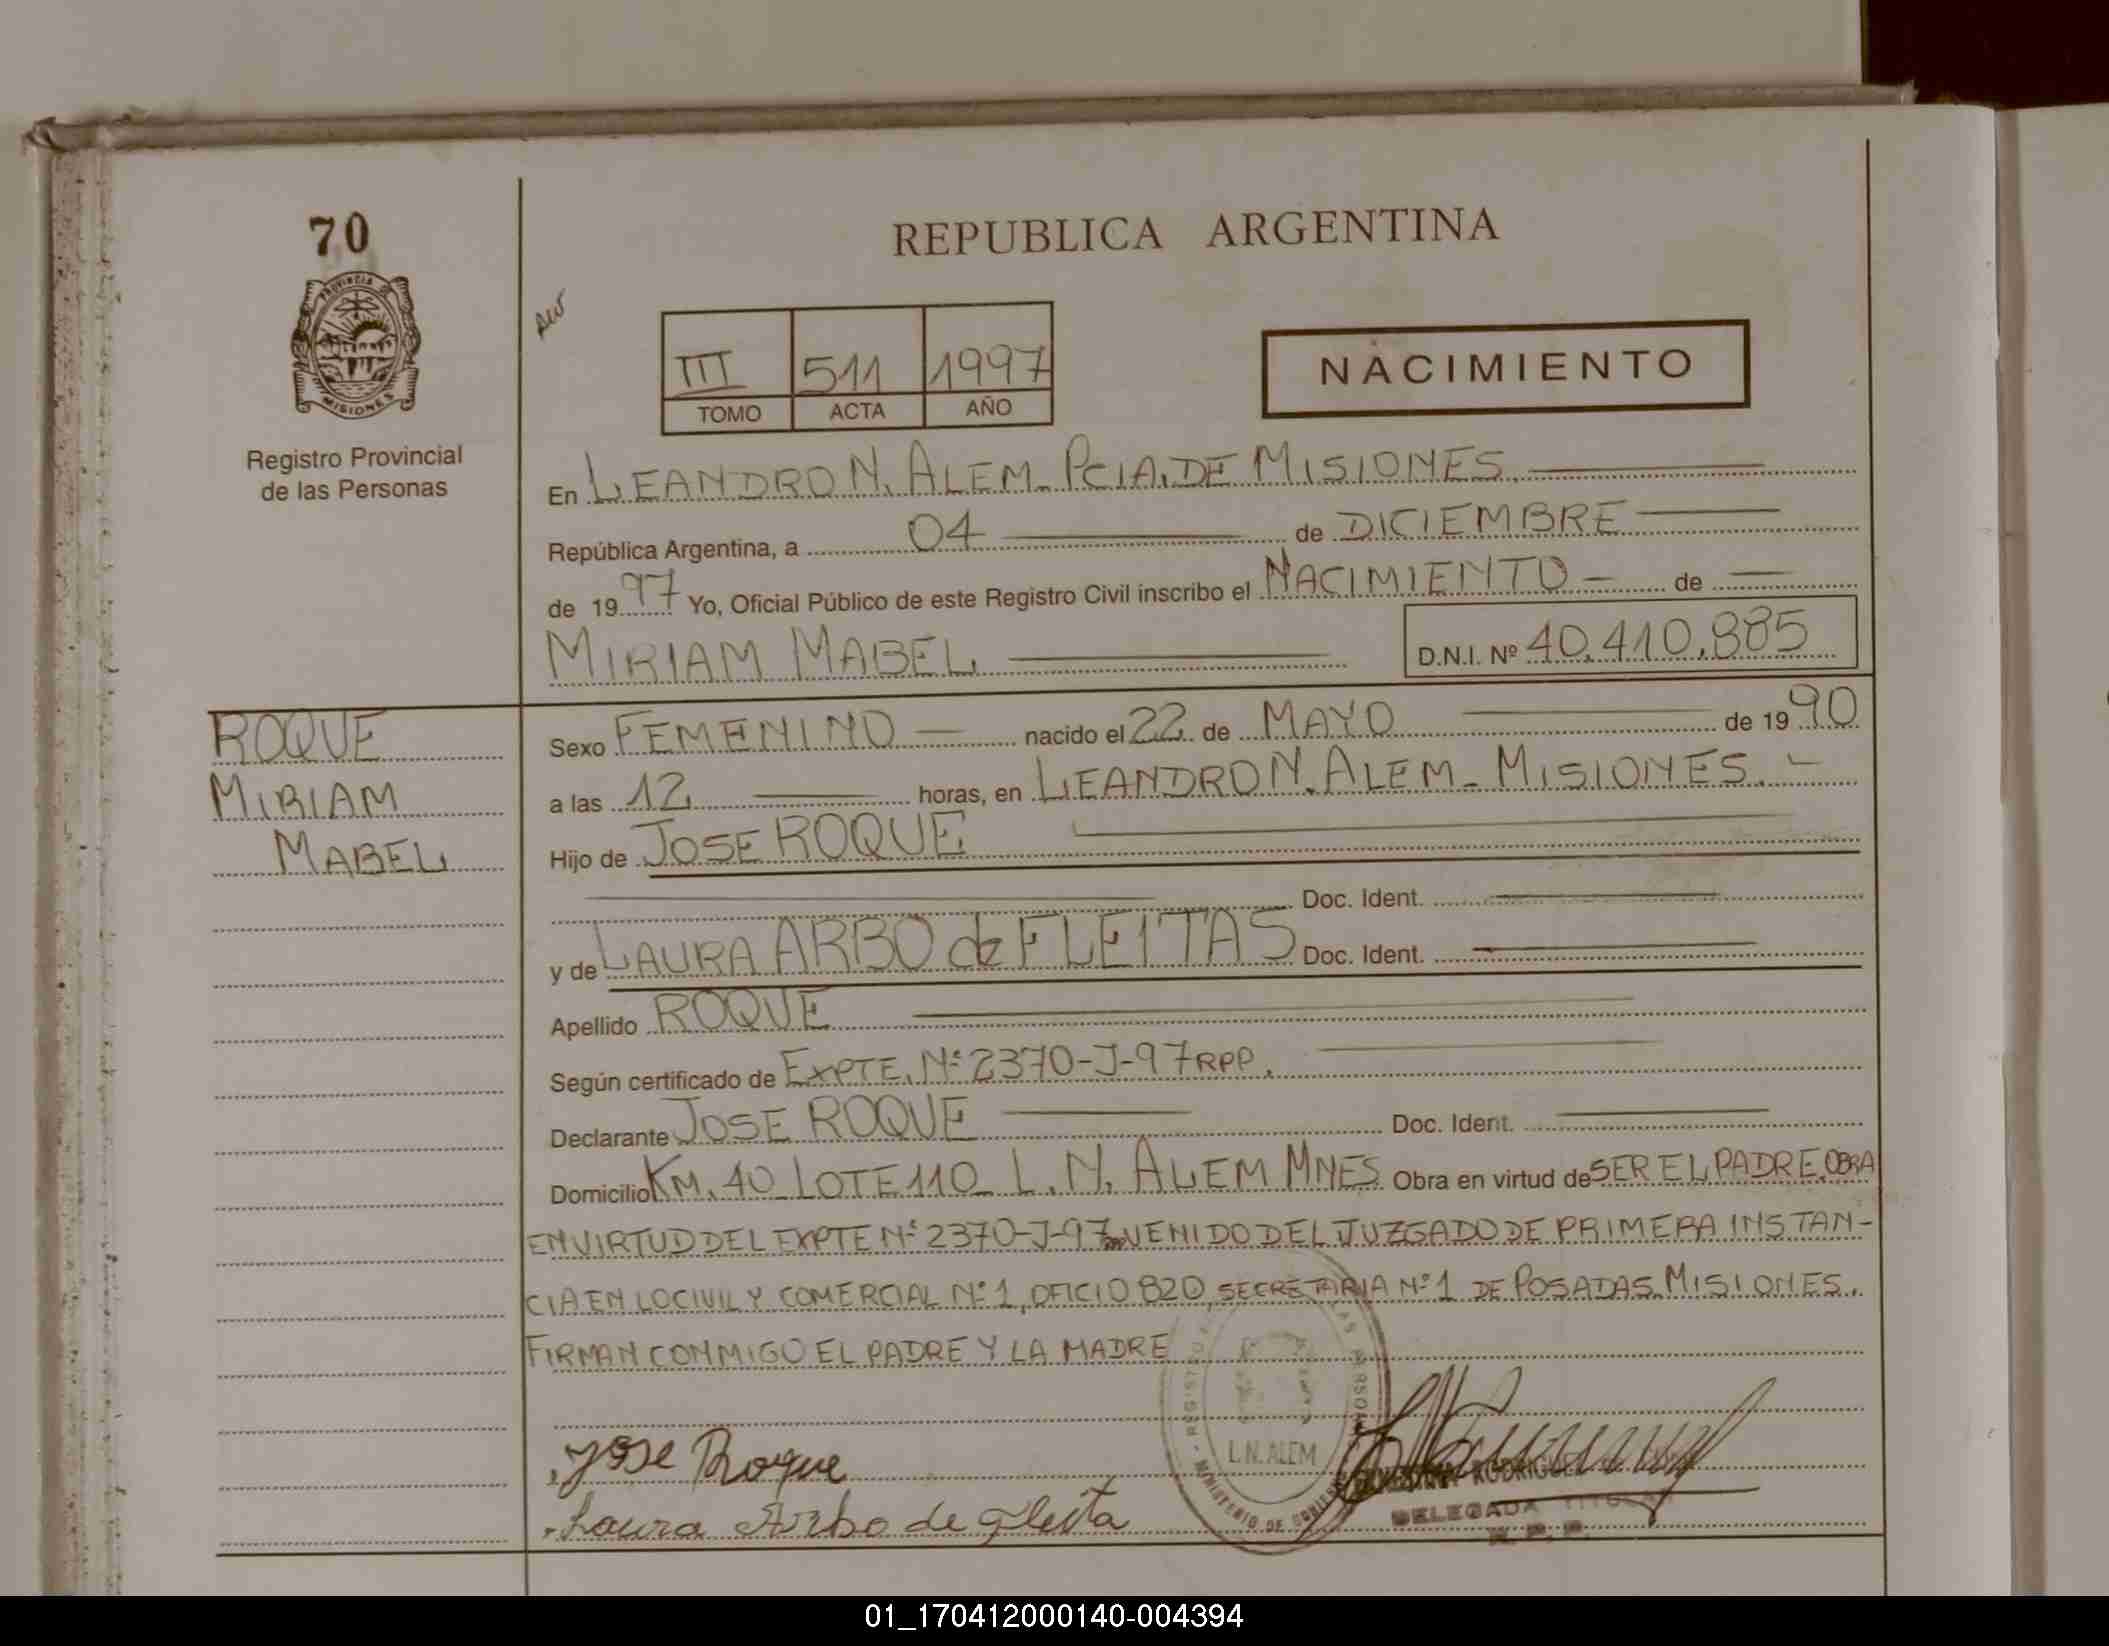 70
REPUBLICA ARGENTINA
PROVINCIA DE
MISIONES
Registro Provincial
de las Personas
III 511 1997
TOMO ACTA AÑO
NACIMIENTO
En LEANDRO N. ALEM_ PCIA. DE MISIONES
República Argentina, a 04 de DICIEMBRE
de 1997 Yo, Oficial Público de este Registro Civil inscribo el NACIMIENTO - de
MIRIAM MABEL
D.N.I. Nº 40.410.885
ROQUE
MIRIAM
MABEL
Sexo FEMENINO nacido el 22 de MAYO de 1990
a las 12 horas, en LEANDRO N. ALEM_ MISIONES. -
Hijo de JOSE ROQUE
Doc. Ident.
y de LAURA ARBO de FLEITAS Doc. Ident.
Apellido ROQUE
Según certificado de EXPTE. Nº 2370-J-97 RPP.
Declarante JOSE ROQUE Doc. Ident.
Domicilio KM. 40 LOTE 110_ L. N. ALEM MNES Obra en virtud de SER EL PADRE. OBRA
EN VIRTUD DEL EXPTE Nº 2370-J-97 VENIDO DEL JUZGADO DE PRIMERA INSTAN-
CIA EN LO CIVIL Y COMERCIAL Nº 1, OFICIO 820, SECRETARIA Nº 1 DE POSADAS MISIONES.
FIRMAN CONMIGO EL PADRE Y LA MADRE
L.N. ALEM
MINISTERIO DE GOBIERNO
Jose Roque
Laura Arbo de fleita
RODRIGUEZ
DELEGADA TITULAR
R. P. P.
01_170412000140-004394